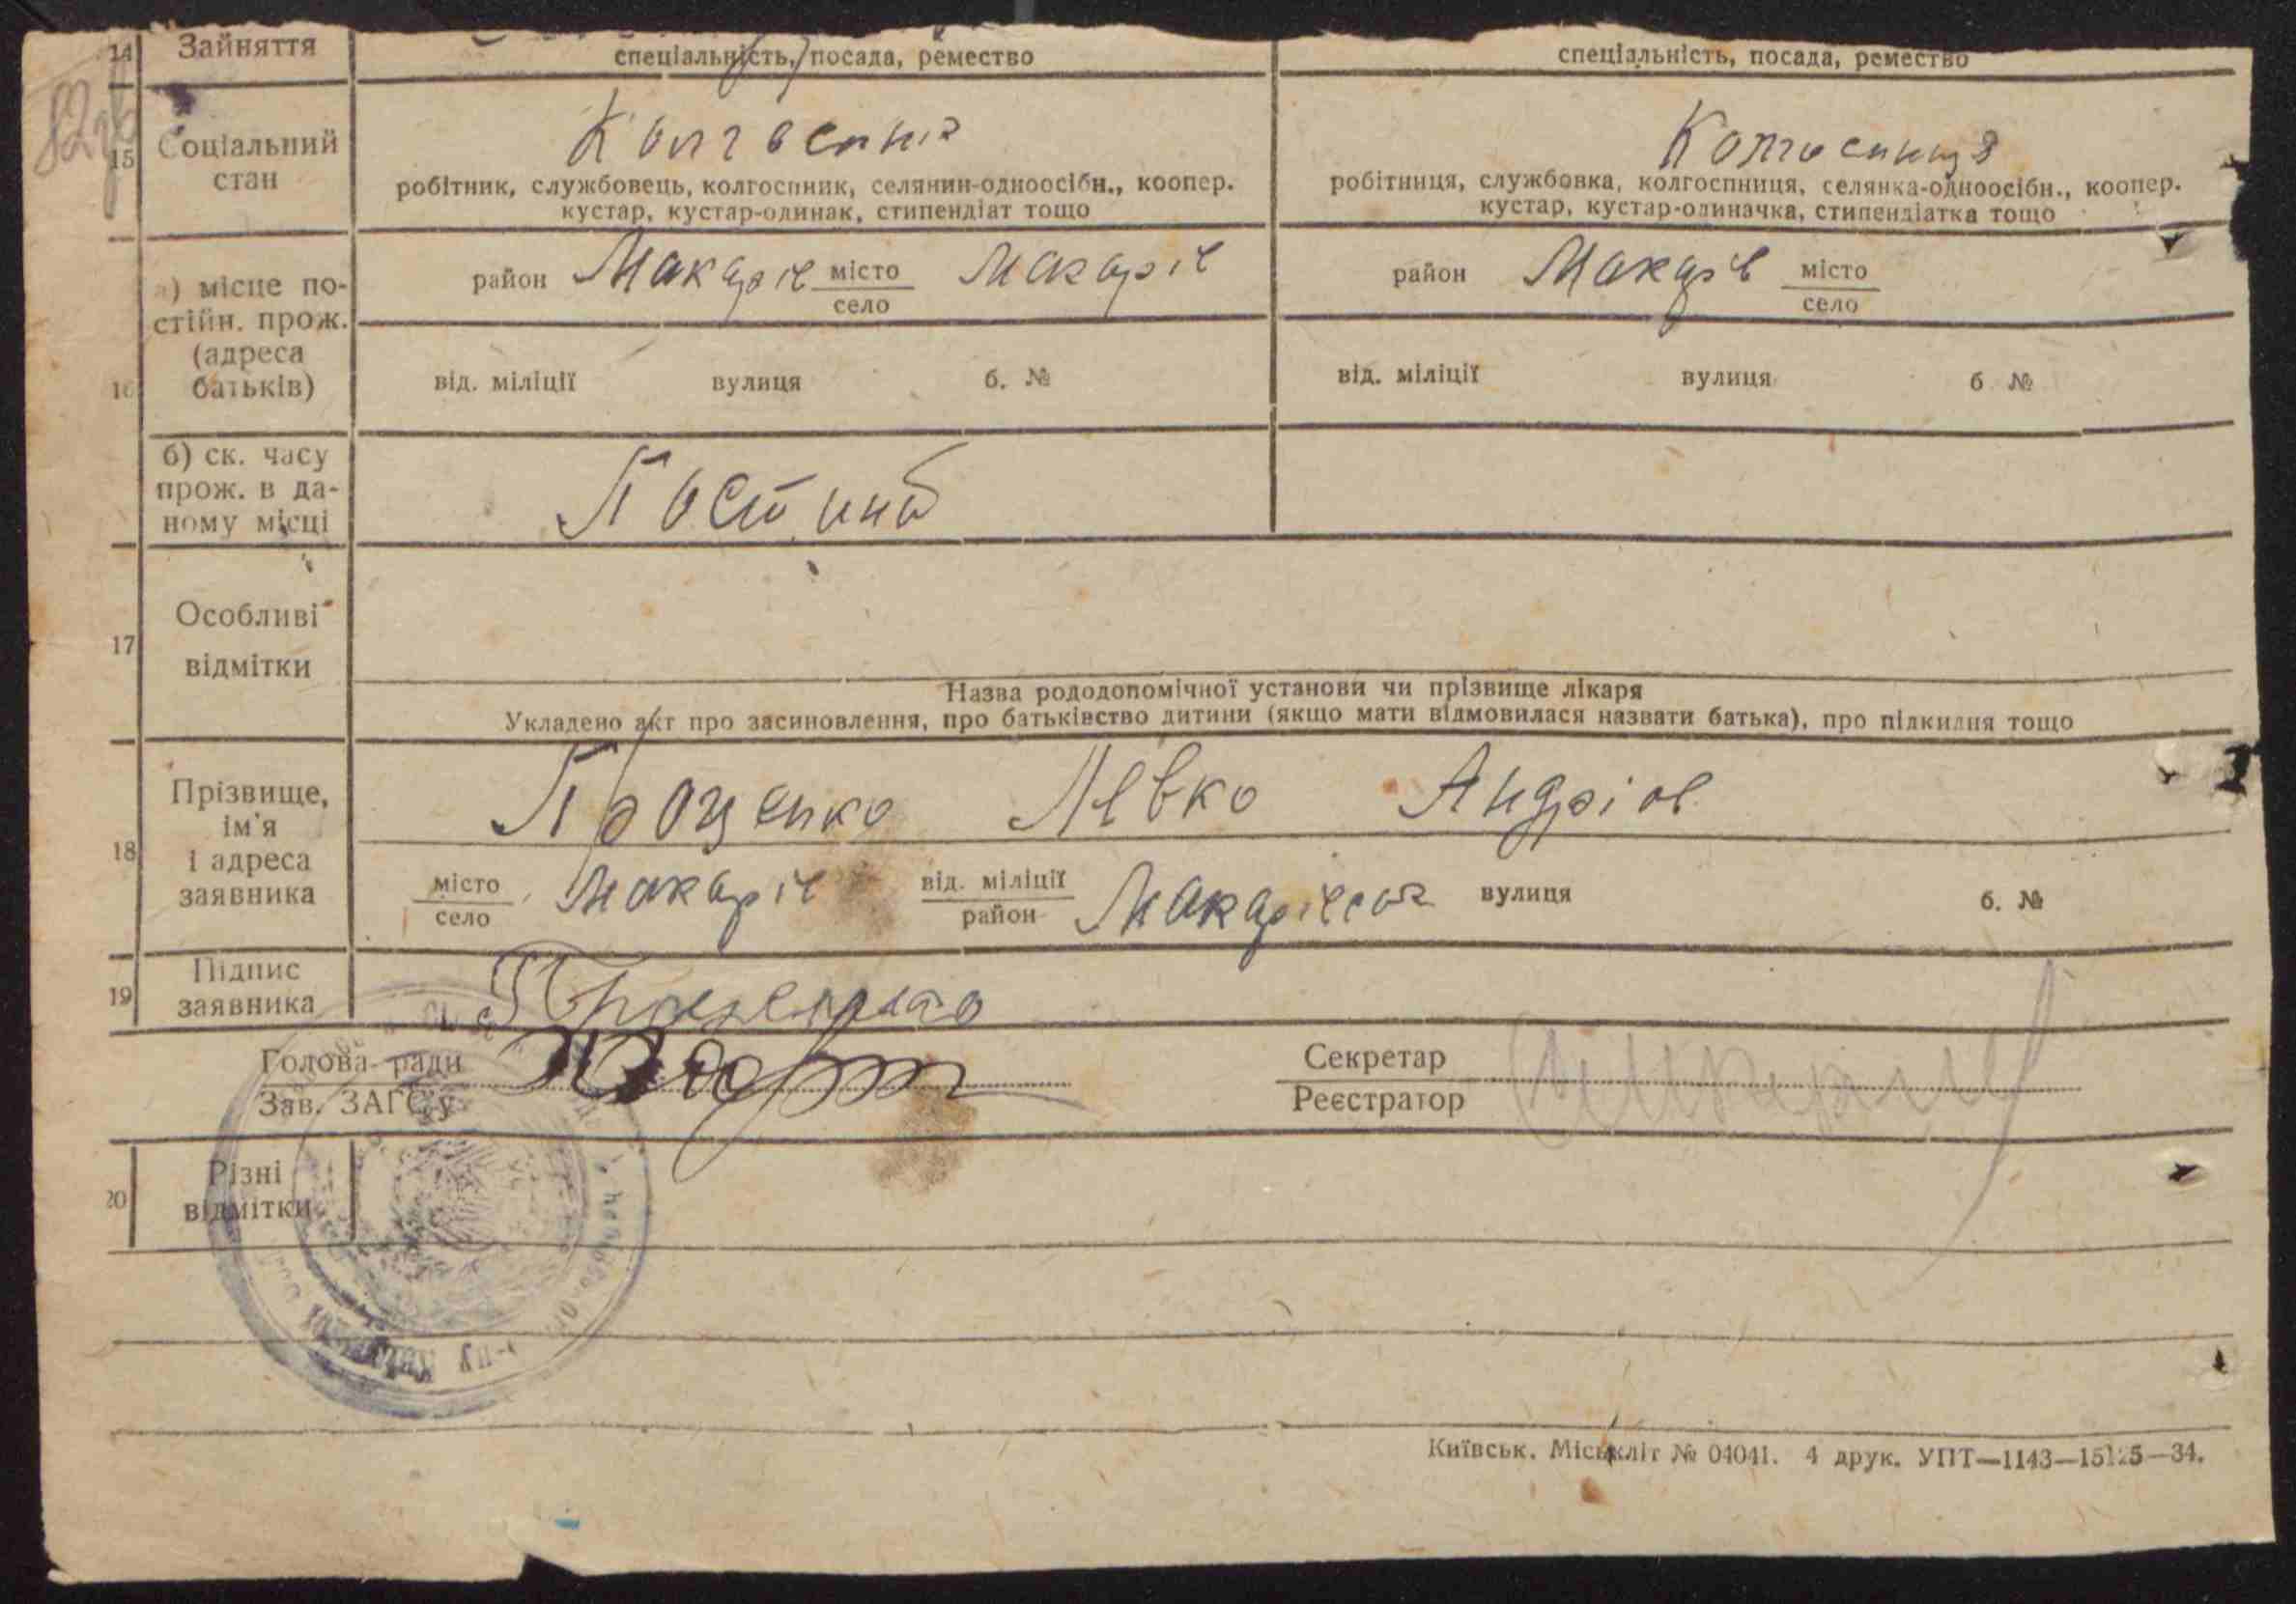 14 Зайняття
спеціальність, посада, ремество
спеціальність, посада, ремество
15 Соціальний стан
Колгоспник
робітник, службовець, колгоспник, селянин-одноосібн., коопер.
кустар, кустар-одинак, стипендіат тощо
Колгоспниця
робітниця, службовка, колгоспниця, селянка-одноосібн., коопер.
кустар, кустар-одиначка, стипендіатка тощо
16
а) місце по-
стійн. прож.
(адреса
батьків)
район Макарів місто Макарів
село
район Макарів місто
село
від. міліції вулиця б. №
від. міліції вулиця б №
б) ск. часу
прож. в да-
ному місці
Постино
17 Особливі
відмітки
Назва рододопомічної установи чи прізвище лікаря
Укладено акт про засиновлення, про батьківство дитини (якщо мати відмовилася назвати батька), про підкидня тощо
18
Прізвище,
ім'я
і адреса
заявника
Проценко Левко Андріов
місто Макарів від. міліції вулиця б. №
село район
19 Підпис
заявника
Проценко
Голова ради
Зав. ЗАГС'у
Секретар
Реєстратор
20 Різні
відмітки
Київськ. Міськліт № 04041. 4 друк. УПТ—1143—15125—34.